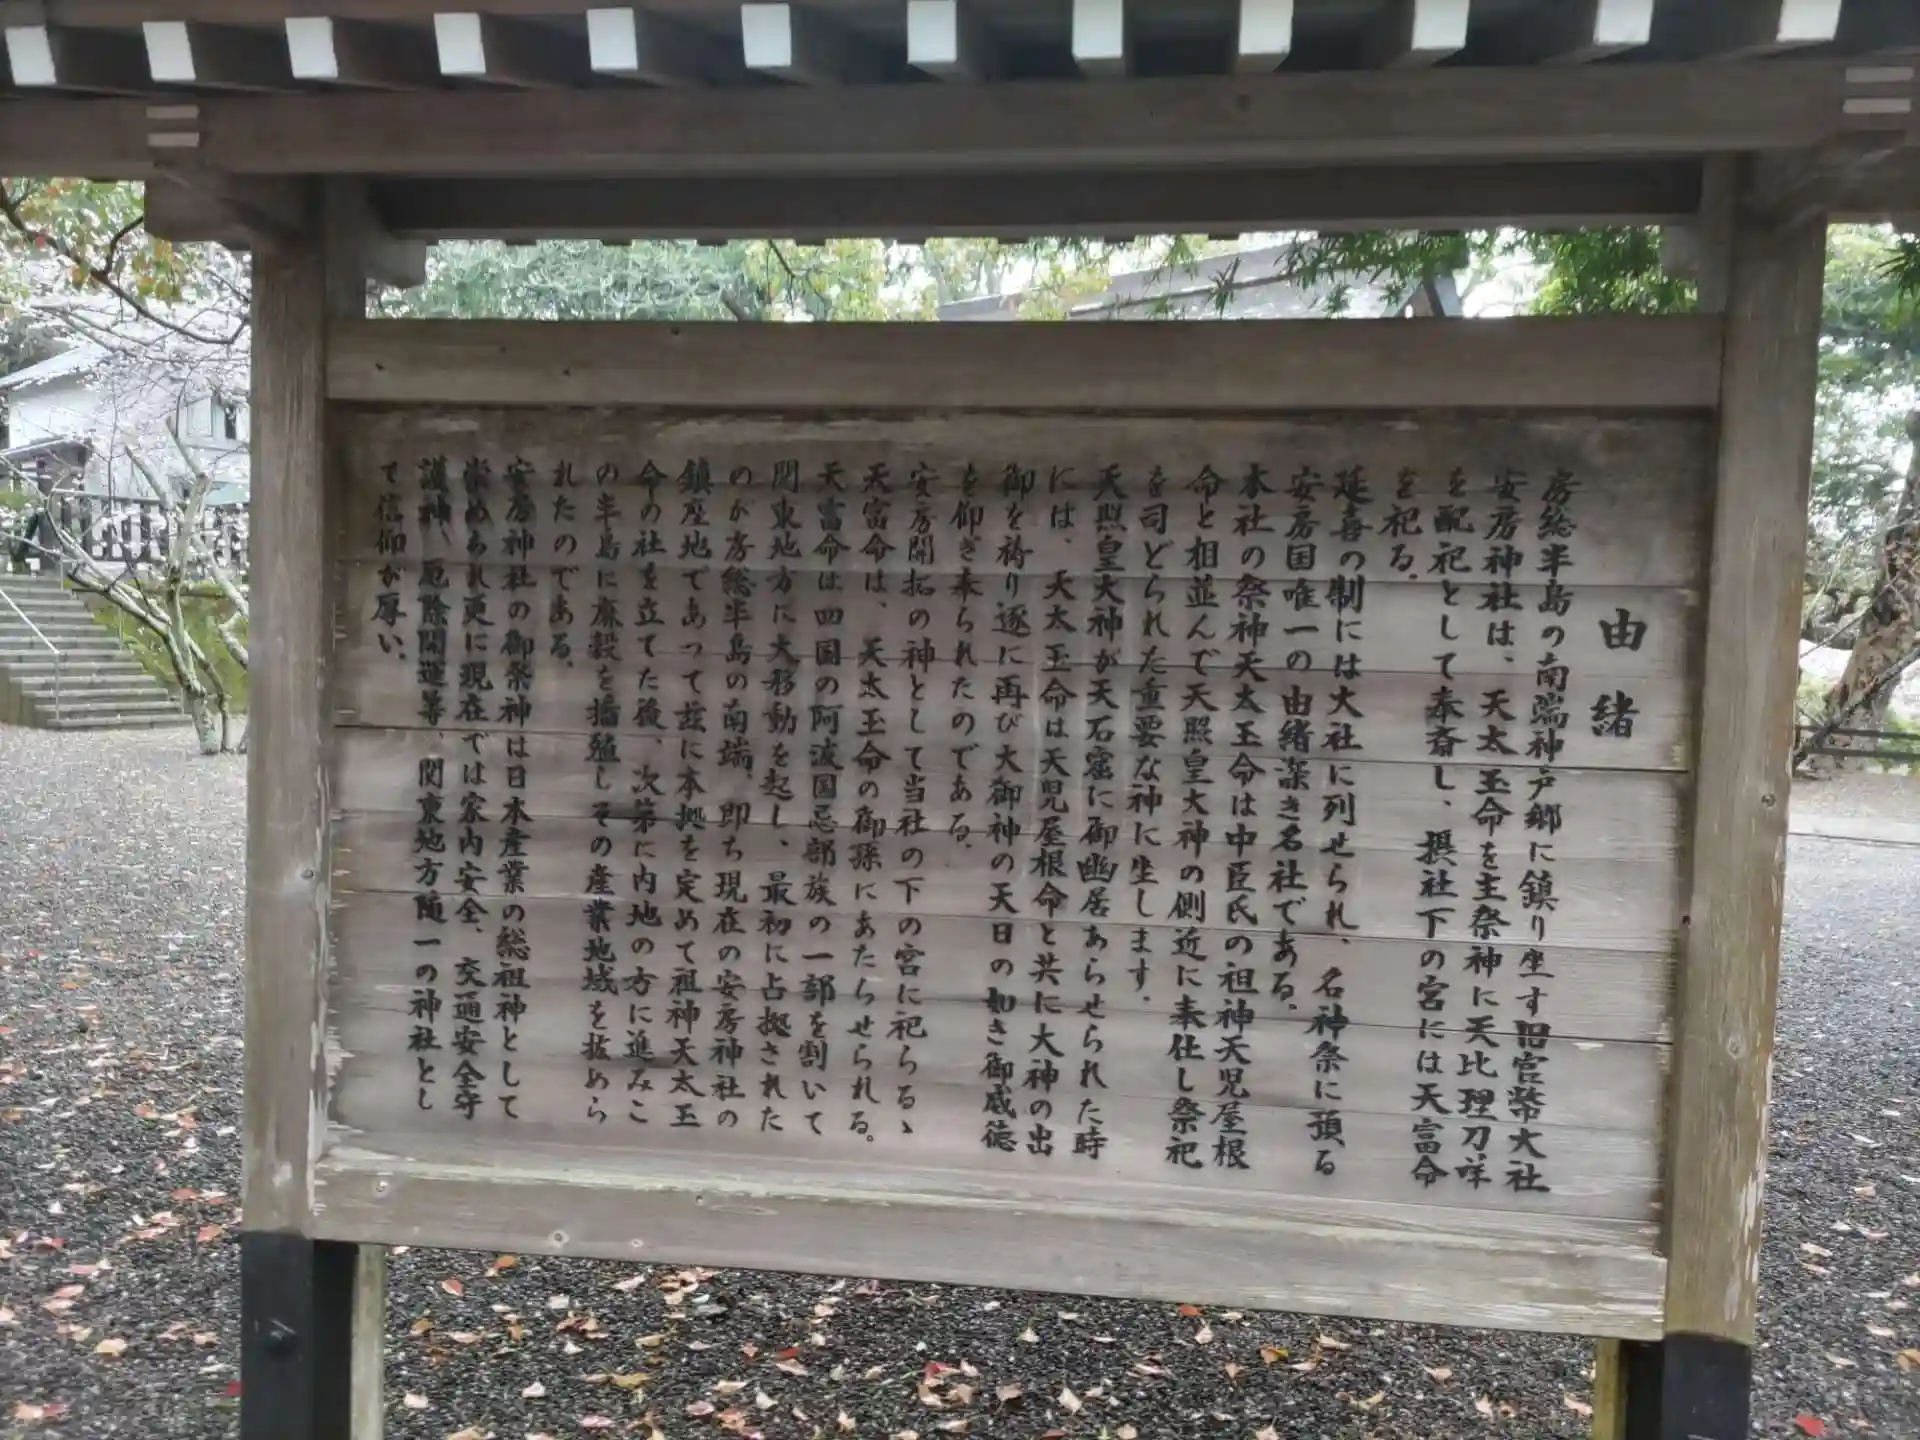 由緒
房総半島の南端神戸郷に鎮り座す旧官幣大社
安房神社は、天太玉命を主祭神に天比理刀咩
を配祀として奉斎し、摂社下の宮には天富命
を祀る。
延喜の制には大社に列せられ、名神祭に預る
安房国唯一の由緒深き名社である。
本社の祭神天太玉命は中臣氏の祖神天児屋根
命と相並んで天照皇大神の側近に奉仕し祭祀
を司どられた重要な神に坐します。
天照皇大神が天石窟に御幽居あらせられた時
には、天太玉命は天児屋根命と共に大神の出
御を祷り遂に再び大御神の天日の如き御威徳
を仰ぎ奉られたのである。
安房開拓の神として当社の下の宮に祀らるゝ
天富命は、天太玉命の御孫にあたらせられる。
天富命は四国の阿波国忌部族の一部を割いて
関東地方に大移動を起し、最初に占拠された
のが房総半島の南端、即ち現在の安房神社の
鎮座地であって茲に本拠を定めて祖神天太玉
命の社を立てた後、次第に内地の方に進みこ
の半島に麻穀を播殖しその産業地域を拡めら
れたのである。
安房神社の御祭神は日本産業の総祖神として
崇められ更に現在では家内安全、交通安全守
護神、厄除開運等、関東地方随一の神社とし
て信仰が厚い。